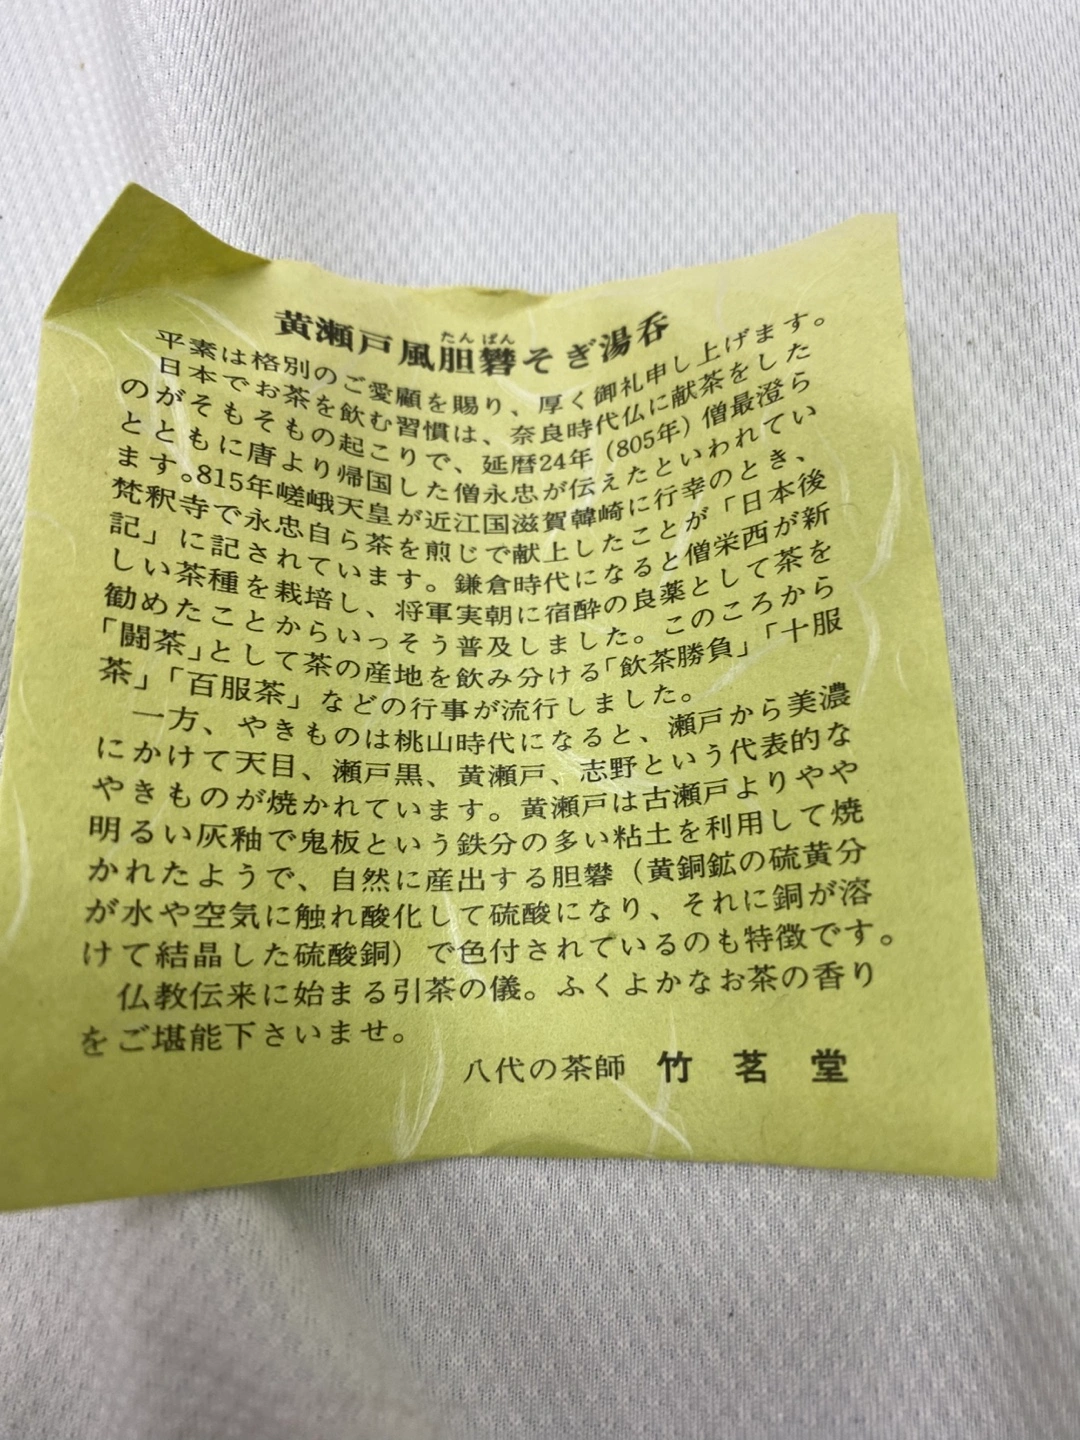 黄瀬戸風胆礬そぎ湯呑
たんぱん
平素は格別のご愛顧を賜り、厚く御礼申し上げます。
日本でお茶を飲む習慣は、奈良時代仏に献茶をした
のがそもそもの起こりで、延暦24年(805年)僧最澄ら
とともに唐より帰国した僧永忠が伝えたといわれてい
ます。815年嵯峨天皇が近江国滋賀韓崎に行幸のとき、
梵釈寺で永忠自ら茶を煎じで献上したことが「日本後
記」に記されています。鎌倉時代になると僧栄西が新
しい茶種を栽培し、将軍実朝に宿酔の良薬として茶を
勧めたことからいっそう普及しました。このころから
「闘茶」として茶の産地を飲み分ける「飲茶勝負」「十服
茶」「百服茶」などの行事が流行しました。
一方、やきものは桃山時代になると、瀬戸から美濃
にかけて天目、瀬戸黒、黄瀬戸、志野という代表的な
やきものが焼かれています。黄瀬戸は古瀬戸よりやや
明るい灰釉で鬼板という鉄分の多い粘土を利用して焼
かれたようで、自然に産出する胆礬(黄銅鉱の硫黄分
が水や空気に触れ酸化して硫酸になり、それに銅が溶
けて結晶した硫酸銅)で色付されているのも特徴です。
仏教伝来に始まる引茶の儀。ふくよかなお茶の香り
をご堪能下さいませ。
八代の茶師 竹茗堂